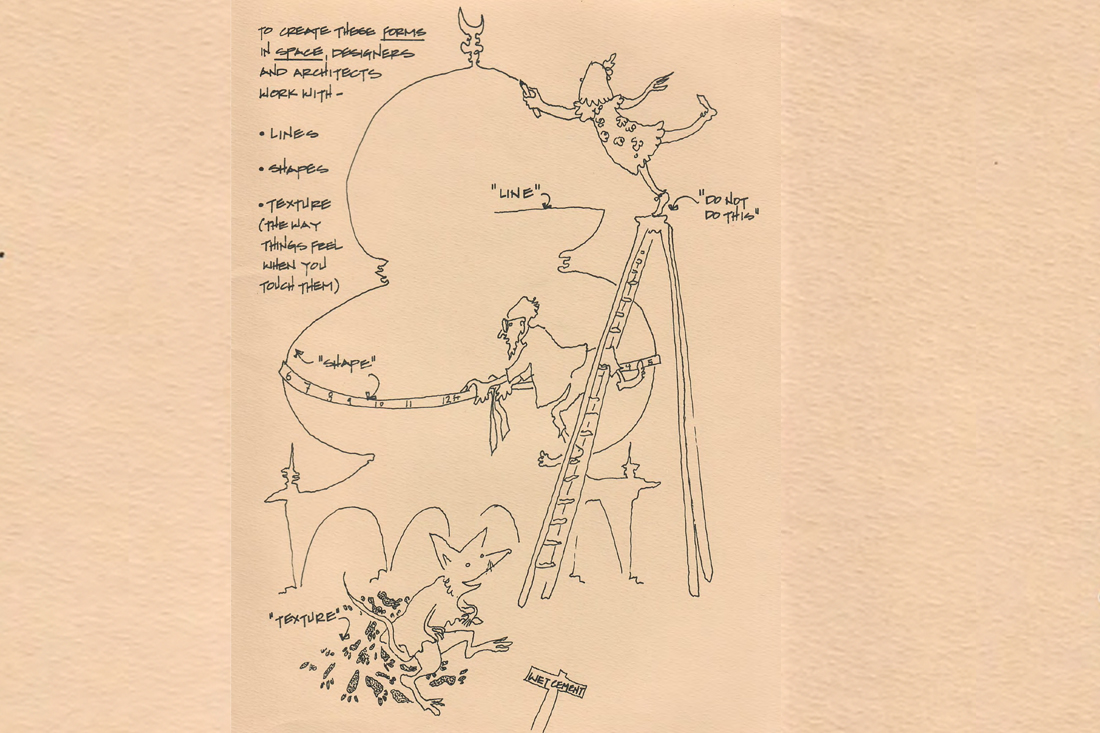 TO CREATE THESE FORMS
IN SPACE, DESIGNERS
AND ARCHITECTS
WORK WITH -
• LINES
• SHAPES
• TEXTURE
(THE WAY
THINGS FEEL
WHEN YOU
TOUCH THEM)
"LINE"
"DO NOT
DO THIS"
"SHAPE"
6 7 8 9 10 11 12+
4 5
"TEXTURE"
WET CEMENT